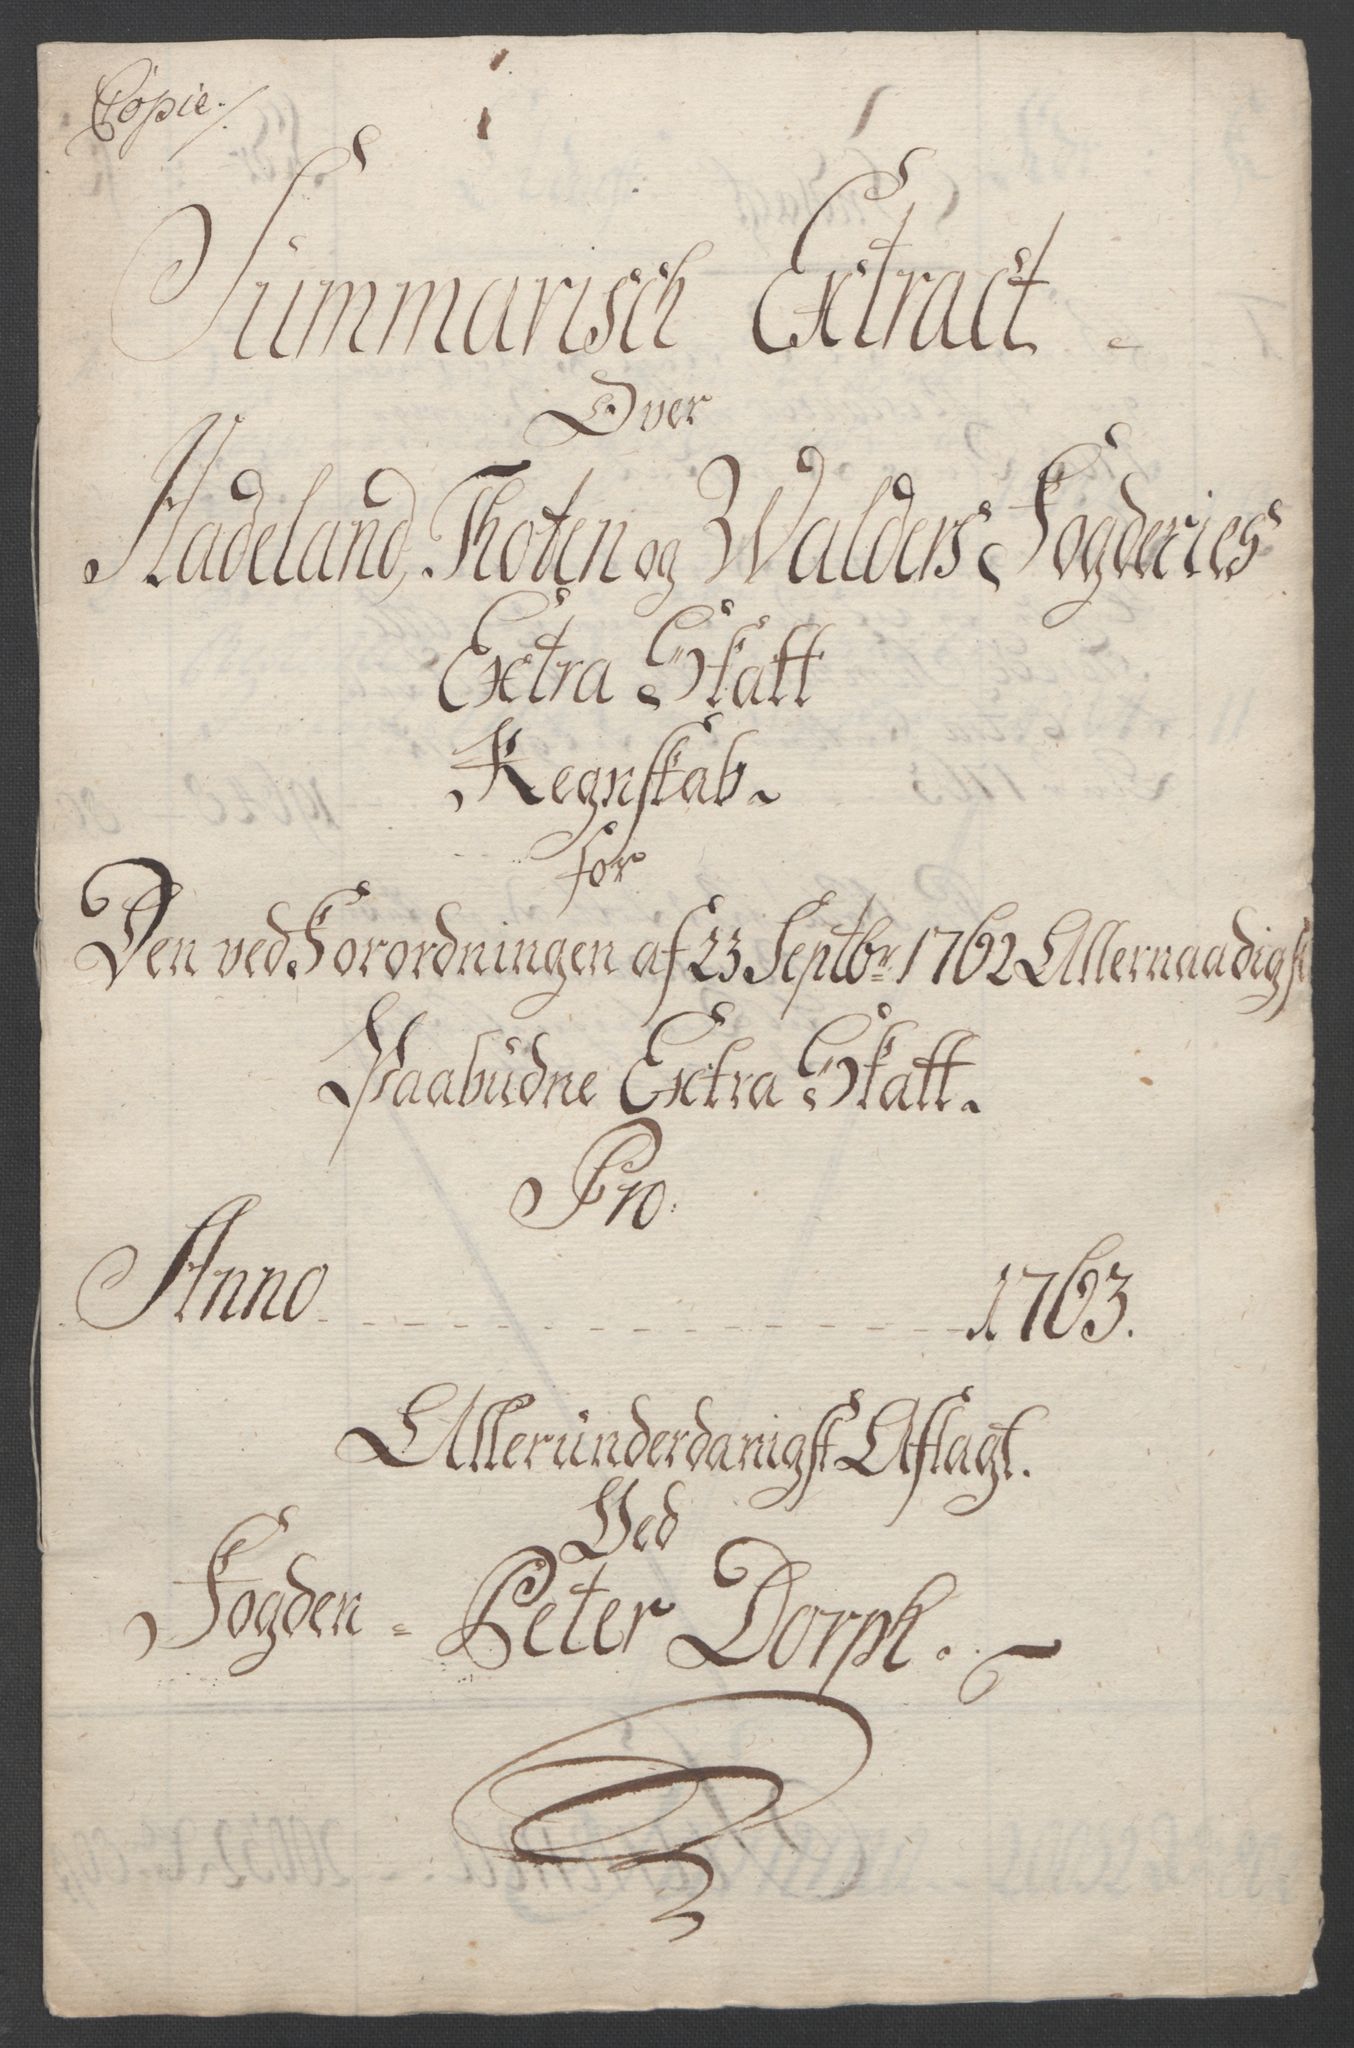 Copie.
Summarisch Extract
Over
Hadeland, Thoten og Walders Fogderies
Extra Skatt
Regnskab.
for
Den ved Forordningen af 23 Septbr: 1762 Allernaadigst
Paabudne Extra Skatt.
Pro.
Anno 1763.
Allerunderdanigst Aflagt.
Ved
Fogden = Peter Dorph.